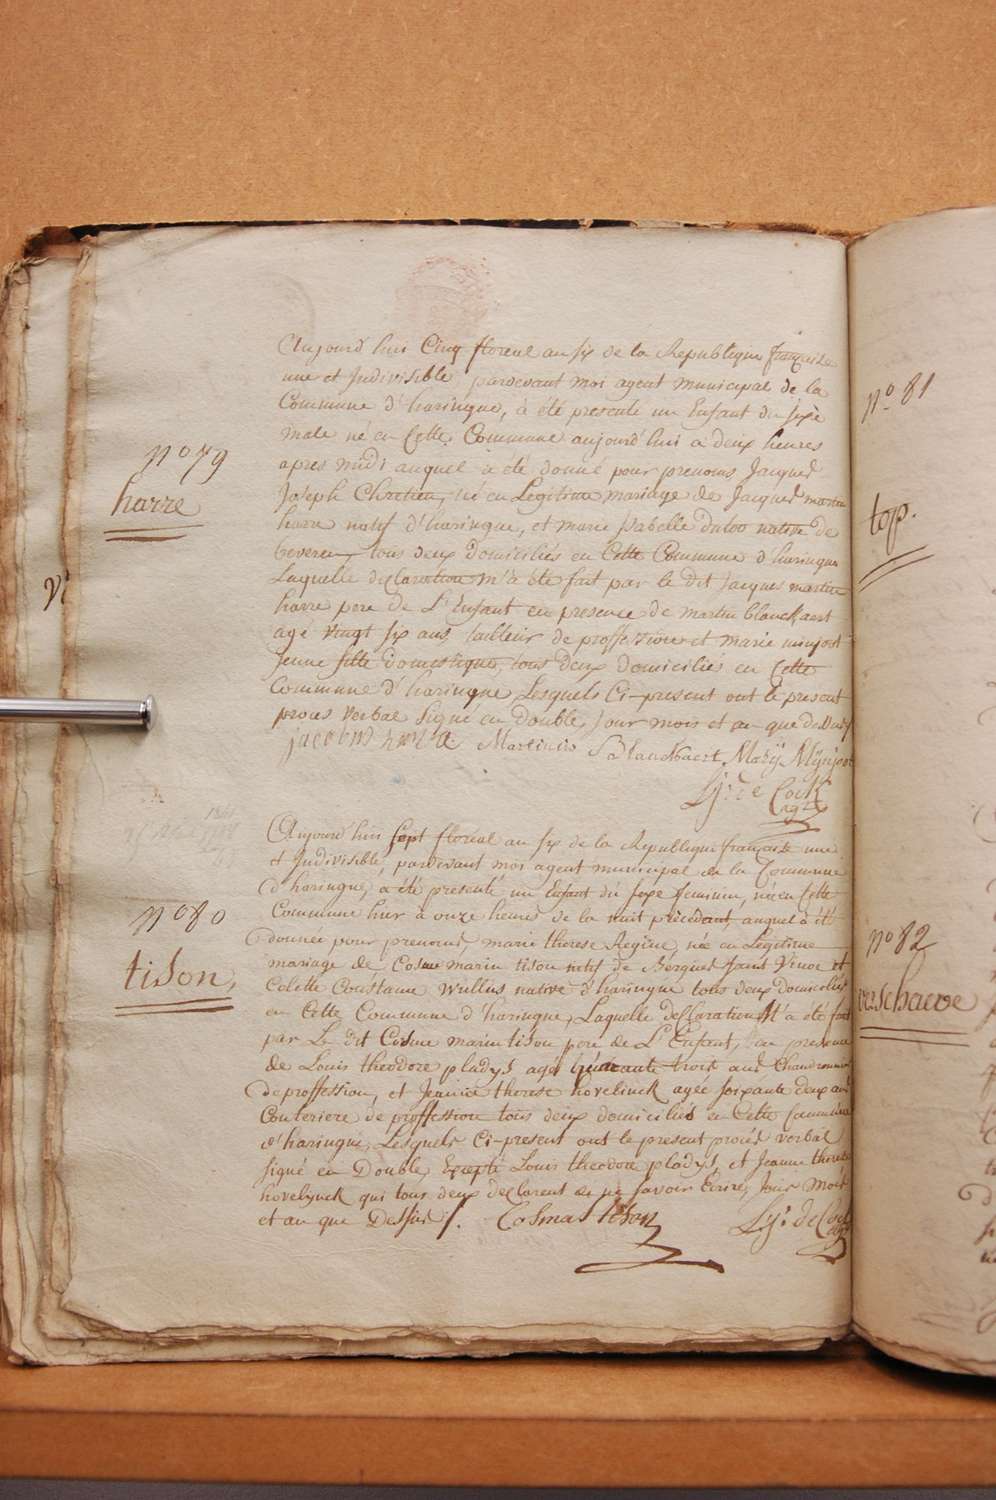 Aujourd'hui Cinq floreal an six de la Republique françaisse
une et Indivisible, pardevant moi agent municipal de la
Commune d'haringue, à été presenté un Enfant du sexe
male né en Cette Commune aujourd'hui a deux heures
apres midi auquel a été donné pour prenoms Jacques
Joseph Chretien, né en Legitime mariage de Jacques martin
harre natif d'haringue, et marie Isabelle duloo native de
beveren tous deux domiciliés en Cette Commune d'haringue
Laquelle declaration m'à été fait par le dit Jacques martin
harre pere de L'Enfant en presence de martin blanckaert
agé vingt six ans, tailleur de proffession et marie minjoot
jeune fille domestique, tous deux domiciliés en Cette
Commune d'haringue, Lesquels Ci-present ont le present
proces verbal signé en double, Jour mois et an que dessus
Martinus Blanckaert Marÿ Mÿnjoot
Lj: de Cock
agt
n° 79
harre
Aujourd'hui sept floreal an six de la Republique française une
et Indivisible, pardevant moi agent municipal de la Commune
d'haringue, a été presenté un Enfant du sexe feminin, née en Cette
Commune hier à onze heures de la nuit précedent, auquel à été
donnée pour prenoms, marie therese Regine, née en Legitime
mariage de Cosme marin tison natif de Bergues saint Vinox et
Colette Constance Wullus native d'haringue tous deux domiciliés
en Cette Commune d'haringue, Laquelle declaration M'a été fait
par Le dit Cosme marin tison pere de L'Enfant, en presence
de Louis theodore pladys agé quarante trois ans Chaudronnier
de proffession, et Jeanne therese hovelinck agée soixante deux ans
Couteriere de proffession tous deux domiciliés en Cette Commune
d'haringue, Lesquels Ci-present ont le present procés verbal
signé en Double, Excepté Louis theodore pladys, et Jeanne therese
hovelynck qui tous deux declarent de ne savoir Ecrire, Jour Mois
et an que Dessus /. Cosmas tison Lj: de Cock
agt
n° 80
tison,
n° 81
top.
n° 82
verschaeve